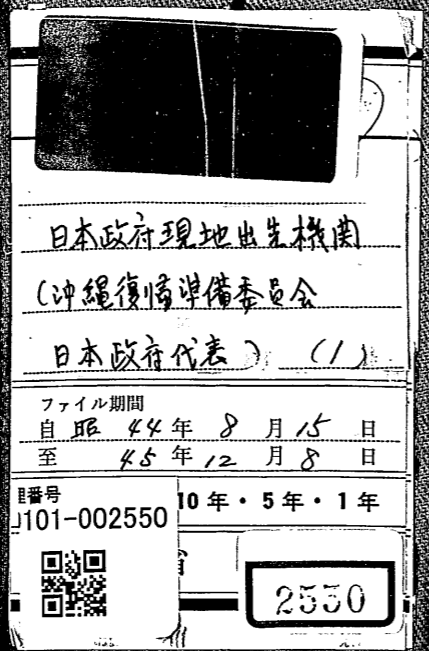 日本政府現地出先機関
(沖縄復帰準備委員会
日本政府代表) (1)
ファイル期間
自 昭 44年 8 月 15 日
至 45年 12 月 8 日
理番号
101-002550
10年・5年・1年
2550